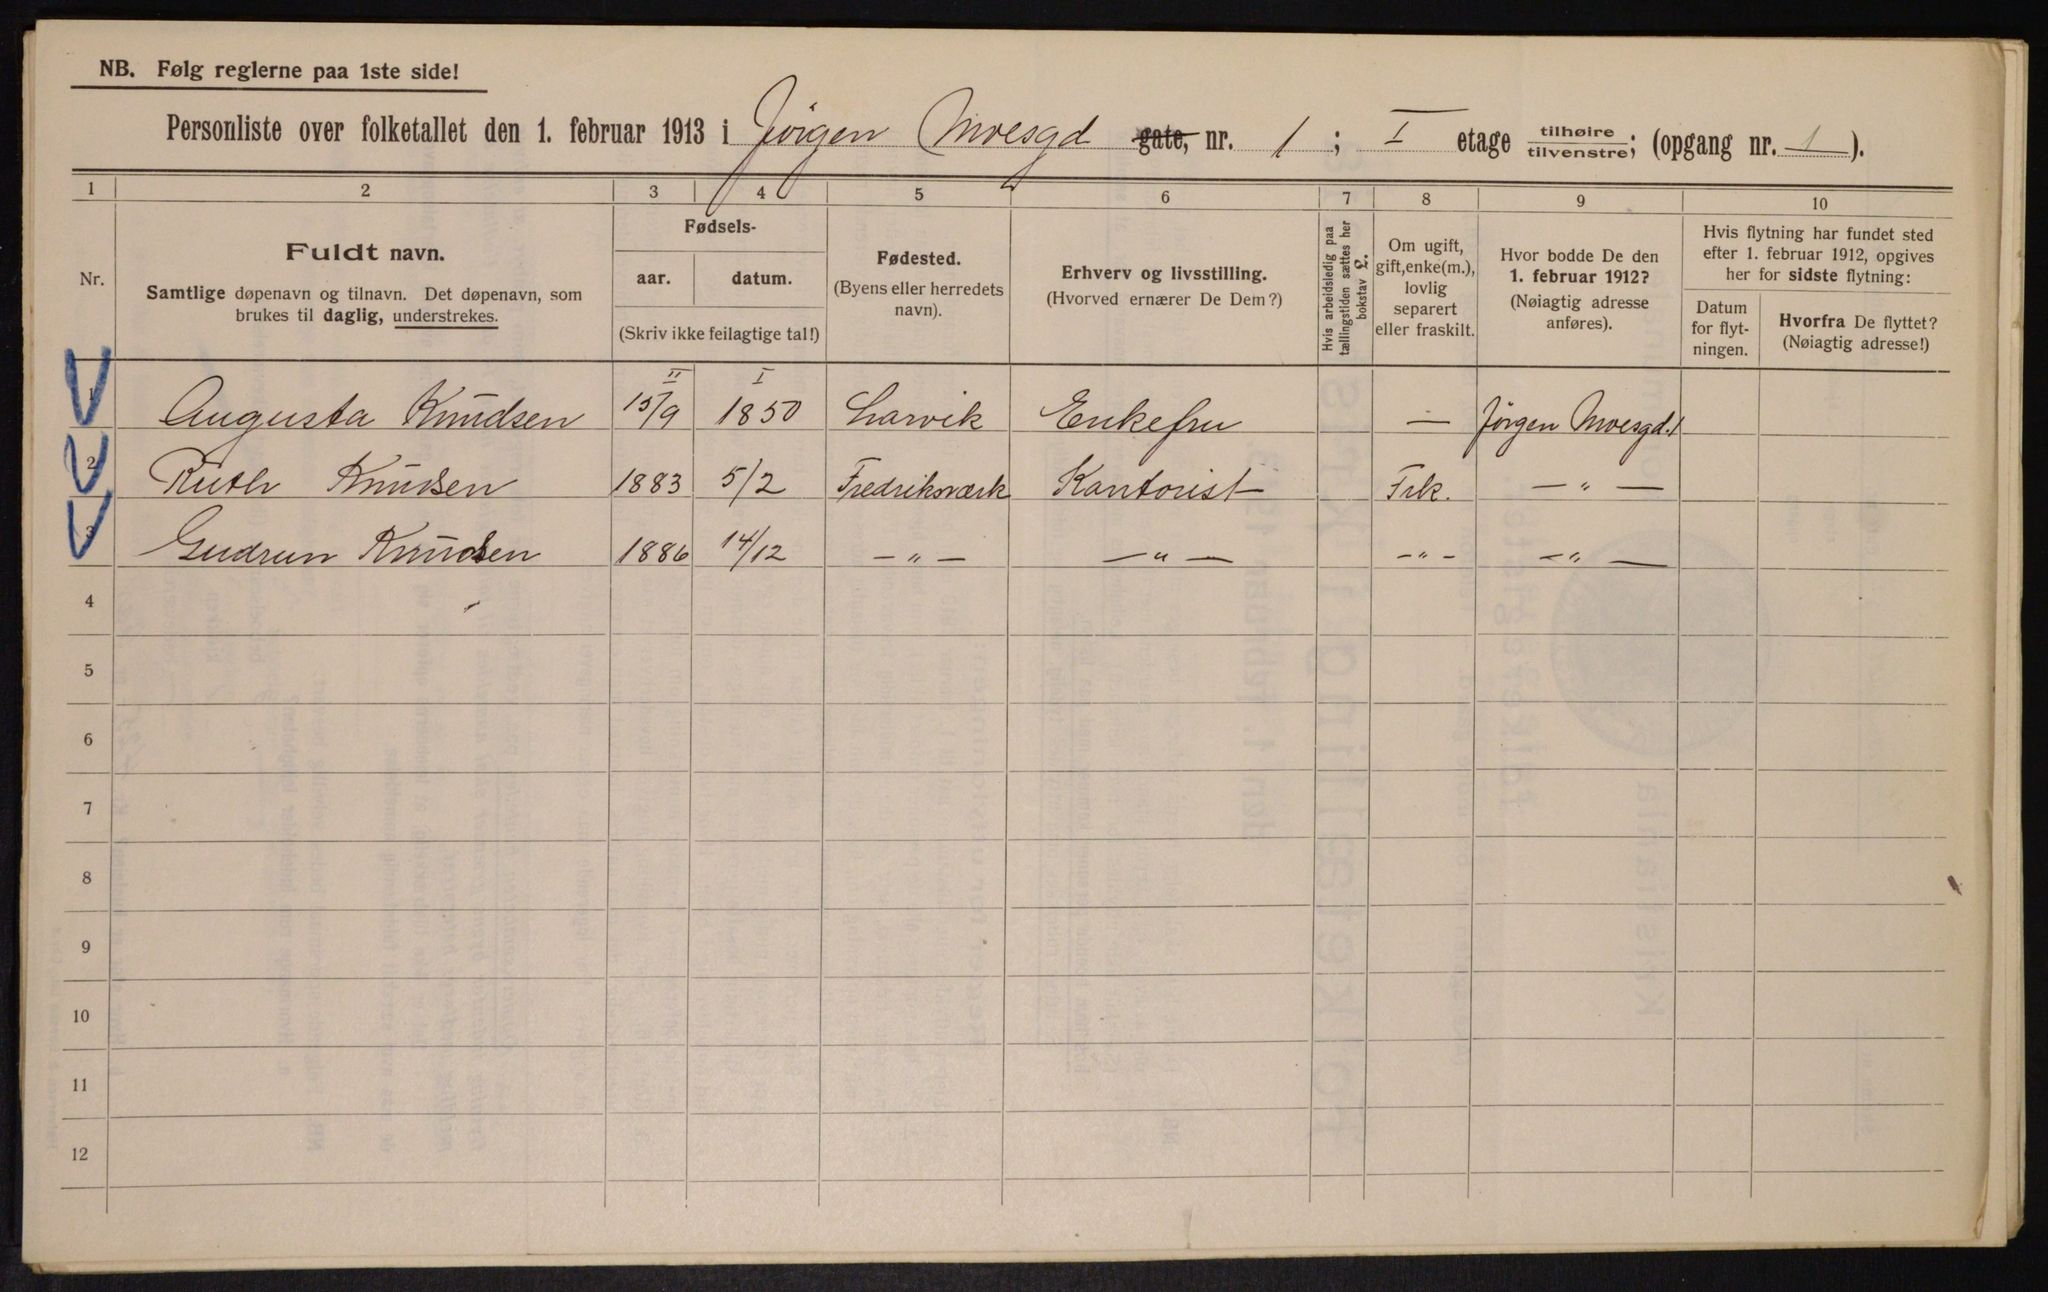 NB. Følg reglerne paa 1ste side!
Personliste over folketallet den 1. februar 1913 i Jørgen Moesgd gate, nr. 1; I etage tilhøire / tilvenstre; (opgang nr. 1).
1 2 3 4 5 6 7 8 9 10
Nr.
Fuldt navn.
Samtlige døpenavn og tilnavn. Det døpenavn, som
brukes til daglig, understrekes.
Fødsels-
aar. datum.
(Skriv ikke feilagtige tal!)
Fødested.
(Byens eller herredets
navn).
Erhverv og livsstilling.
(Hvorved ernærer De Dem?)
Hvis arbeidsledig paa
tællingstiden sættes her
bokstav L.
Om ugift,
gift, enke(m.),
lovlig
separert
eller fraskilt.
Hvor bodde De den
1. februar 1912?
(Nøiagtig adresse
anføres).
Hvis flytning har fundet sted
efter 1. februar 1912, opgives
her for sidste flytning:
Datum
for flyt-
ningen.
Hvorfra De flyttet?
(Nøiagtig adresse!)
II I
1 Augusta Knudsen 15/9 1850 Larvik Enkefru — Jørgen Moesgd. 1
2 Ruth Knudsen 1883 5/2 Fredriksværk Kontorist Frk. — " —
3 Gudrun Knudsen 1886 14/12 — " — — " — — " — — " —
4
5
6
7
8
9
10
11
12